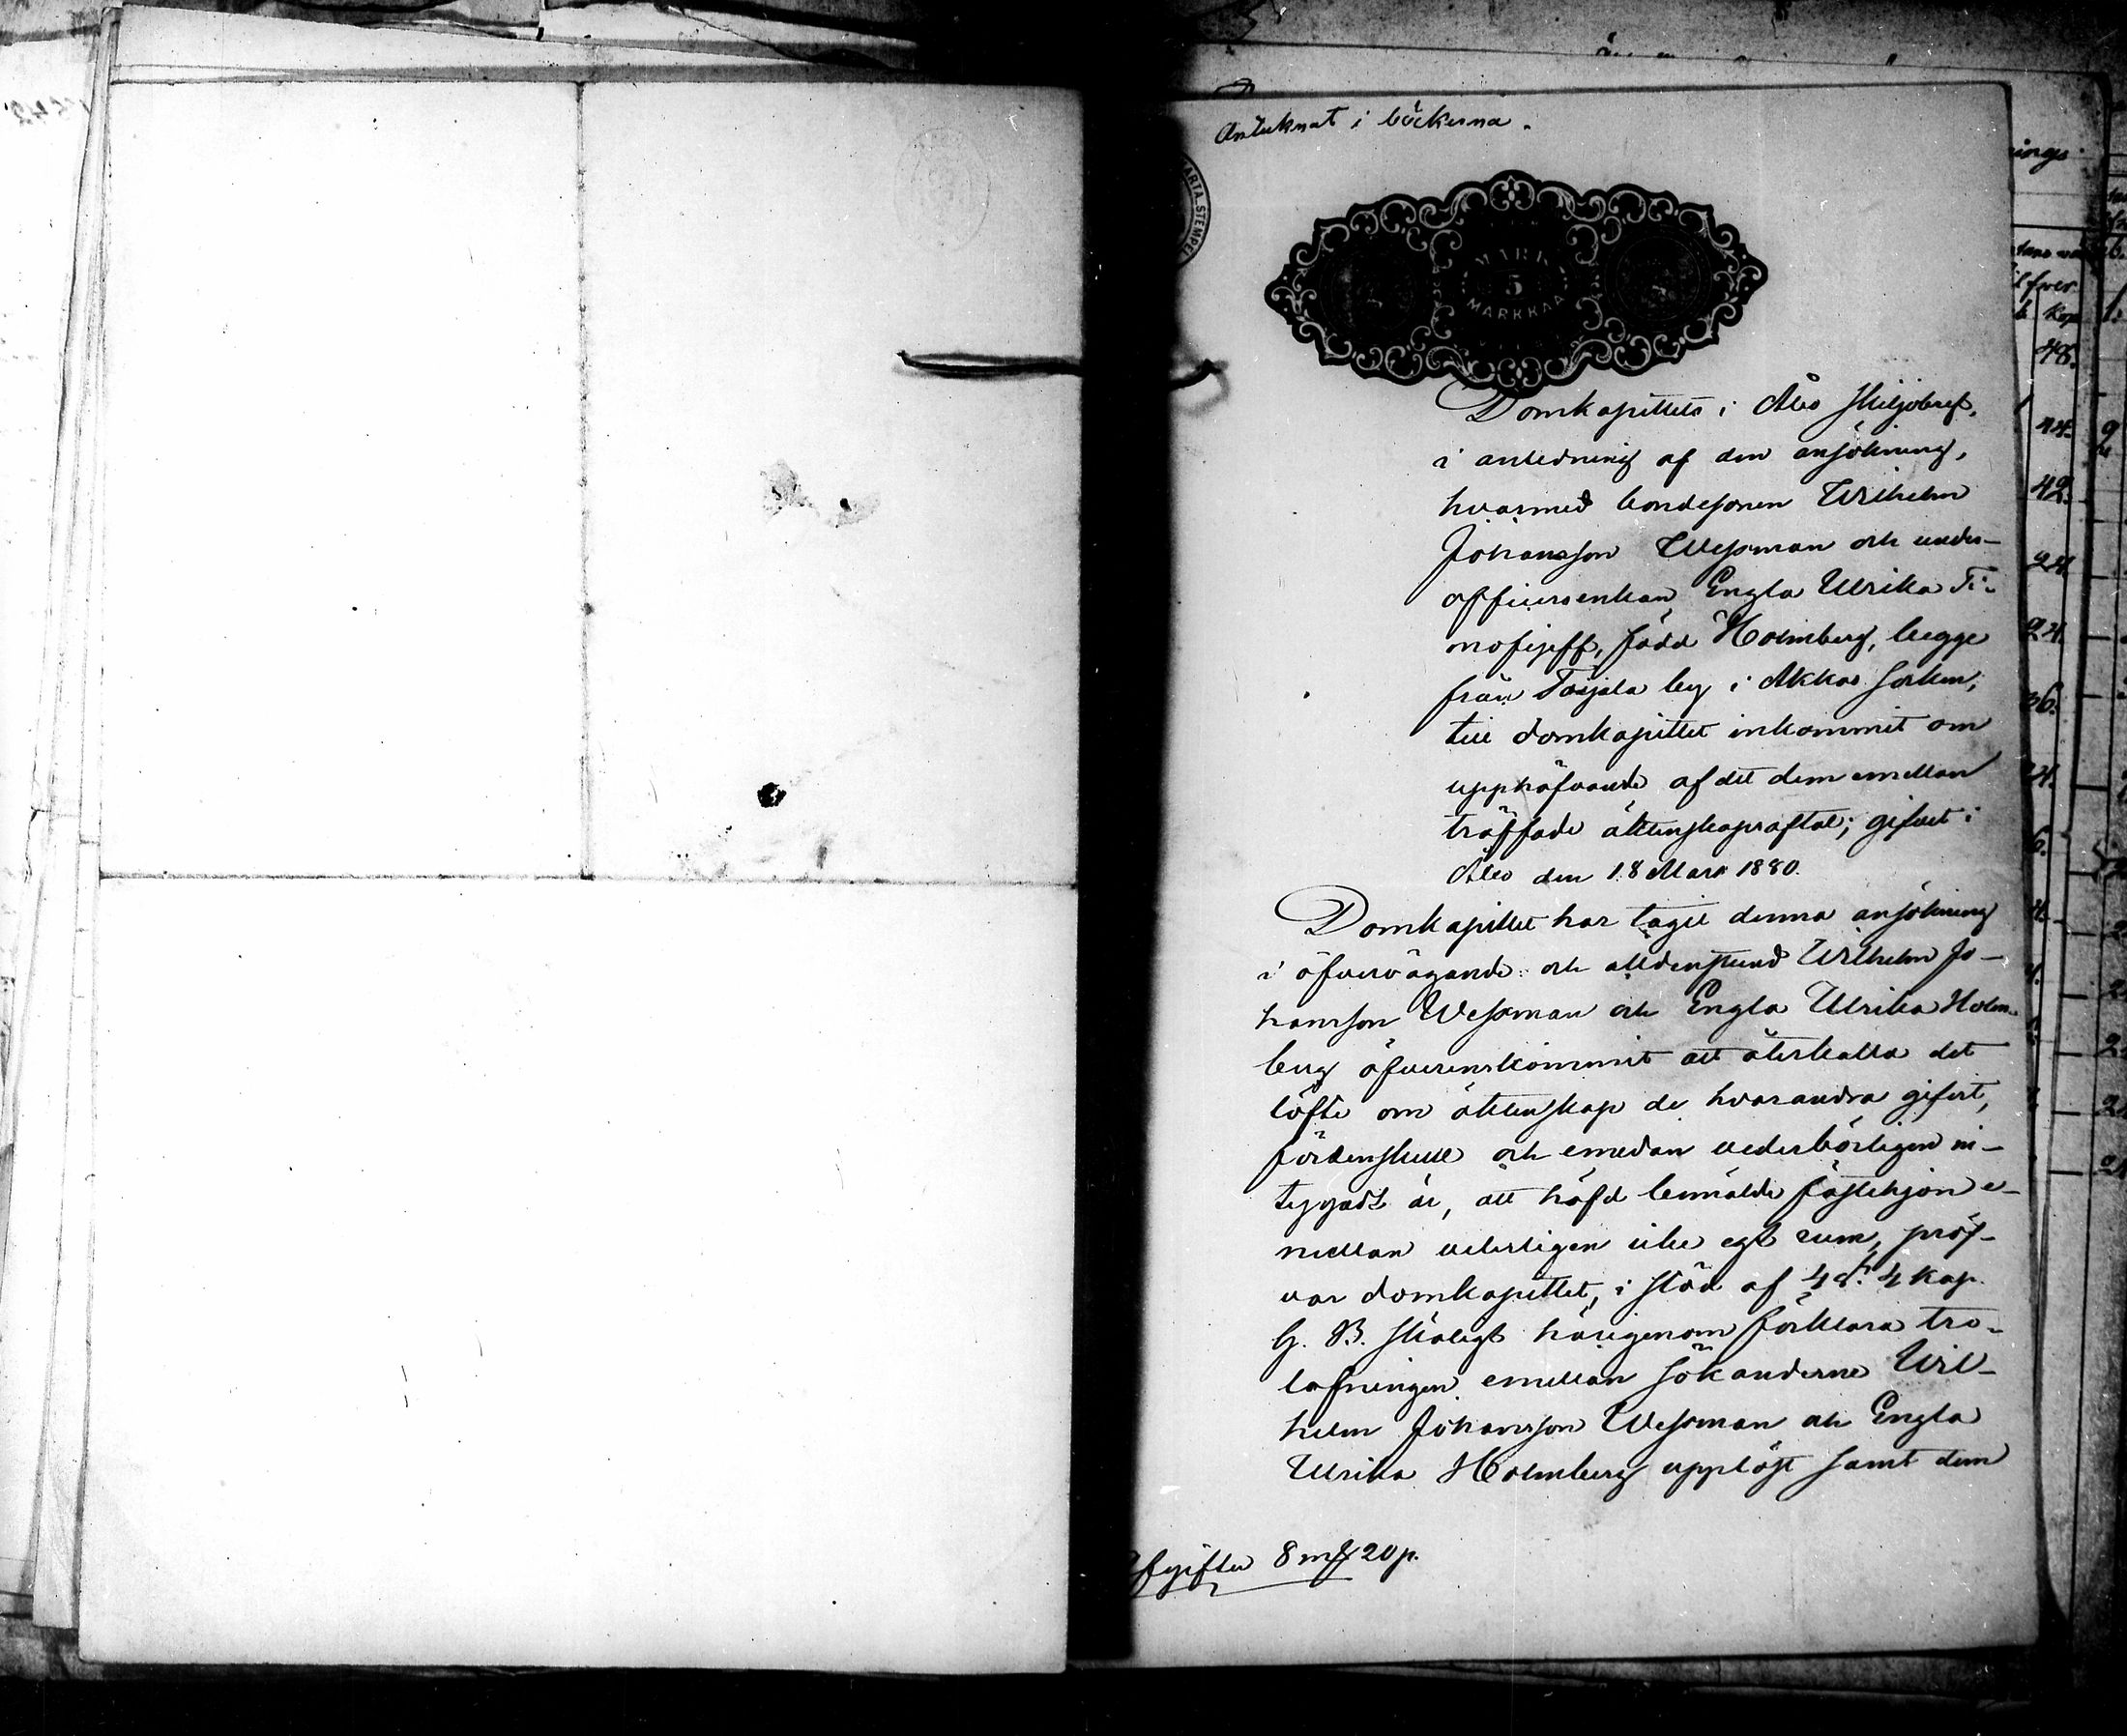 Antecknat i böckerna.
MARK
5
MARKKAA
Domkapitlets i Åbo skiljobref,
i anledning af den ansökning,
hvarmed bondesonen Wilhelm
Johansson Wessman och under-
officersenkan Engla Ulrika Ti-
mofejeff, född Holmberg, begge
från Toijala by i Akkas socken,
till domkapitlet inkommit om
upphäfvande af det dem emellan
träffade äktenskapsaftal; gifvet i
Åbo den 18 Mars 1880.
Domkapitlet har tagit denna ansökning
i öfvervägande och alldenstund Wilhelm Jo-
hansson Wessman och Engla Ulrika Holm-
berg öfverenskommit att återkalla det
löfte om äktenskap de hvarandra gifvit,
fördenskull och emedan vederbörligen in-
tygadt är, att häfd bemälde fästehjon e-
mellan veterligen icke egt rum, pröf-
var domkapitlet, i stöd af 4 §. 4 kap.
G. B. skäligt härigenom förklara tro-
lofningen emellan sökanderne Wil-
helm Johansson Wessman och Engla
Ulrika Holmberg upplöst samt dem
Afgifter 8 mk 20 p.
ARTA. STEMPEL
48.
44.
42.
24.
24.